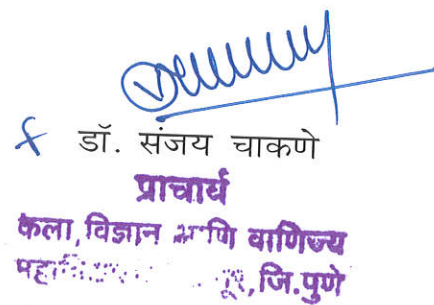 डॉ. संजय चाकणे
प्राचार्य
कला, विज्ञान आणि वाणिज्य
जि.पुणे